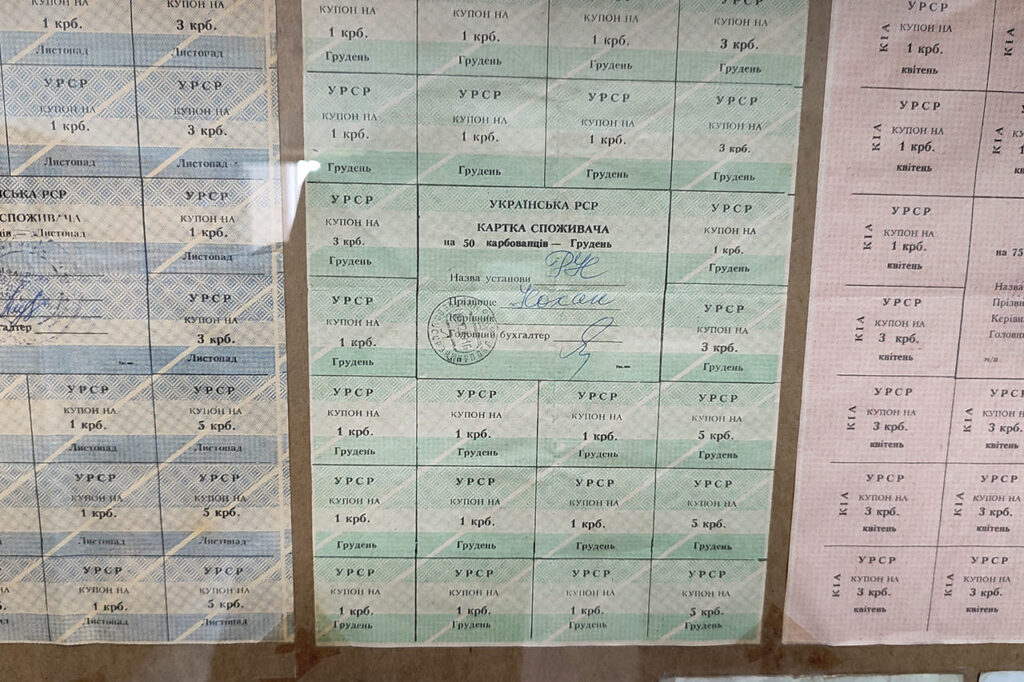 КУПОН НА КУПОН НА
1 крб. 3 крб.
Листопад Листопад
УРСР УРСР
КУПОН НА КУПОН НА
1 крб. 3 крб.
Листопад Листопад
НСЬКА РСР
СПОЖИВАЧА
ів — Листопад
галтер
УРСР
КУПОН НА
1 крб.
Листопад
УРСР
КУПОН НА
3 крб.
Листопад
УРСР УРСР
КУПОН НА КУПОН НА
1 крб. 5 крб.
Листопад Листопад
УРСР УРСР
КУПОН НА КУПОН НА
1 крб. 5 крб.
Листопад Листопад
УРСР УРСР
КУПОН НА КУПОН НА
1 крб. 5 крб.
Листопад Листопад
КУПОН НА КУПОН НА КУПОН НА
1 крб. 1 крб. 1 крб. 3 крб.
Грудень Грудень Грудень Грудень
УРСР УРСР УРСР УРСР
КУПОН НА КУПОН НА КУПОН НА КУПОН НА
1 крб. 1 крб. 1 крб. 3 крб.
Грудень Грудень Грудень Грудень
УРСР
КУПОН НА
3 крб.
Грудень
УРСР
КУПОН НА
1 крб.
Грудень
УКРАЇНСЬКА РСР
КАРТКА СПОЖИВАЧА
на 50 карбованців — Грудень
Назва установи
Прізвище Кохан
Керівник
Головний бухгалтер
УРСР
КУПОН НА
1 крб.
Грудень
УРСР
КУПОН НА
3 крб.
Грудень
УРСР УРСР УРСР УРСР
КУПОН НА КУПОН НА КУПОН НА КУПОН НА
1 крб. 1 крб. 1 крб. 5 крб.
Грудень Грудень Грудень Грудень
УРСР УРСР УРСР УРСР
КУПОН НА КУПОН НА КУПОН НА КУПОН НА
1 крб. 1 крб. 1 крб. 5 крб.
Грудень Грудень Грудень Грудень
УРСР УРСР УРСР УРСР
КУПОН НА КУПОН НА КУПОН НА КУПОН НА
1 крб. 1 крб. 1 крб. 5 крб.
Грудень Грудень Грудень Грудень
УРСР
КІА КУПОН НА
1 крб.
квітень
УРСР
КІА КУПОН НА КІА
1 крб.
квітень
УРСР
КІА КУПОН НА
1 крб.
квітень
УРСР
КІА КУПОН НА
3 крб.
квітень
на 75
Назва
Прізви
Керівн
Головн
м/п
УРСР УРСР
КІА КУПОН НА КІА КУПОН Н
3 крб. 3 крб.
квітень квітень
УРСР УРСР
КІА КУПОН НА КІА КУПОН НА
3 крб. 3 крб.
квітень квітень
УРСР УРСР
КІА КУПОН НА КІА КУПОН НА
3 крб. 3 крб.
квітень квітень